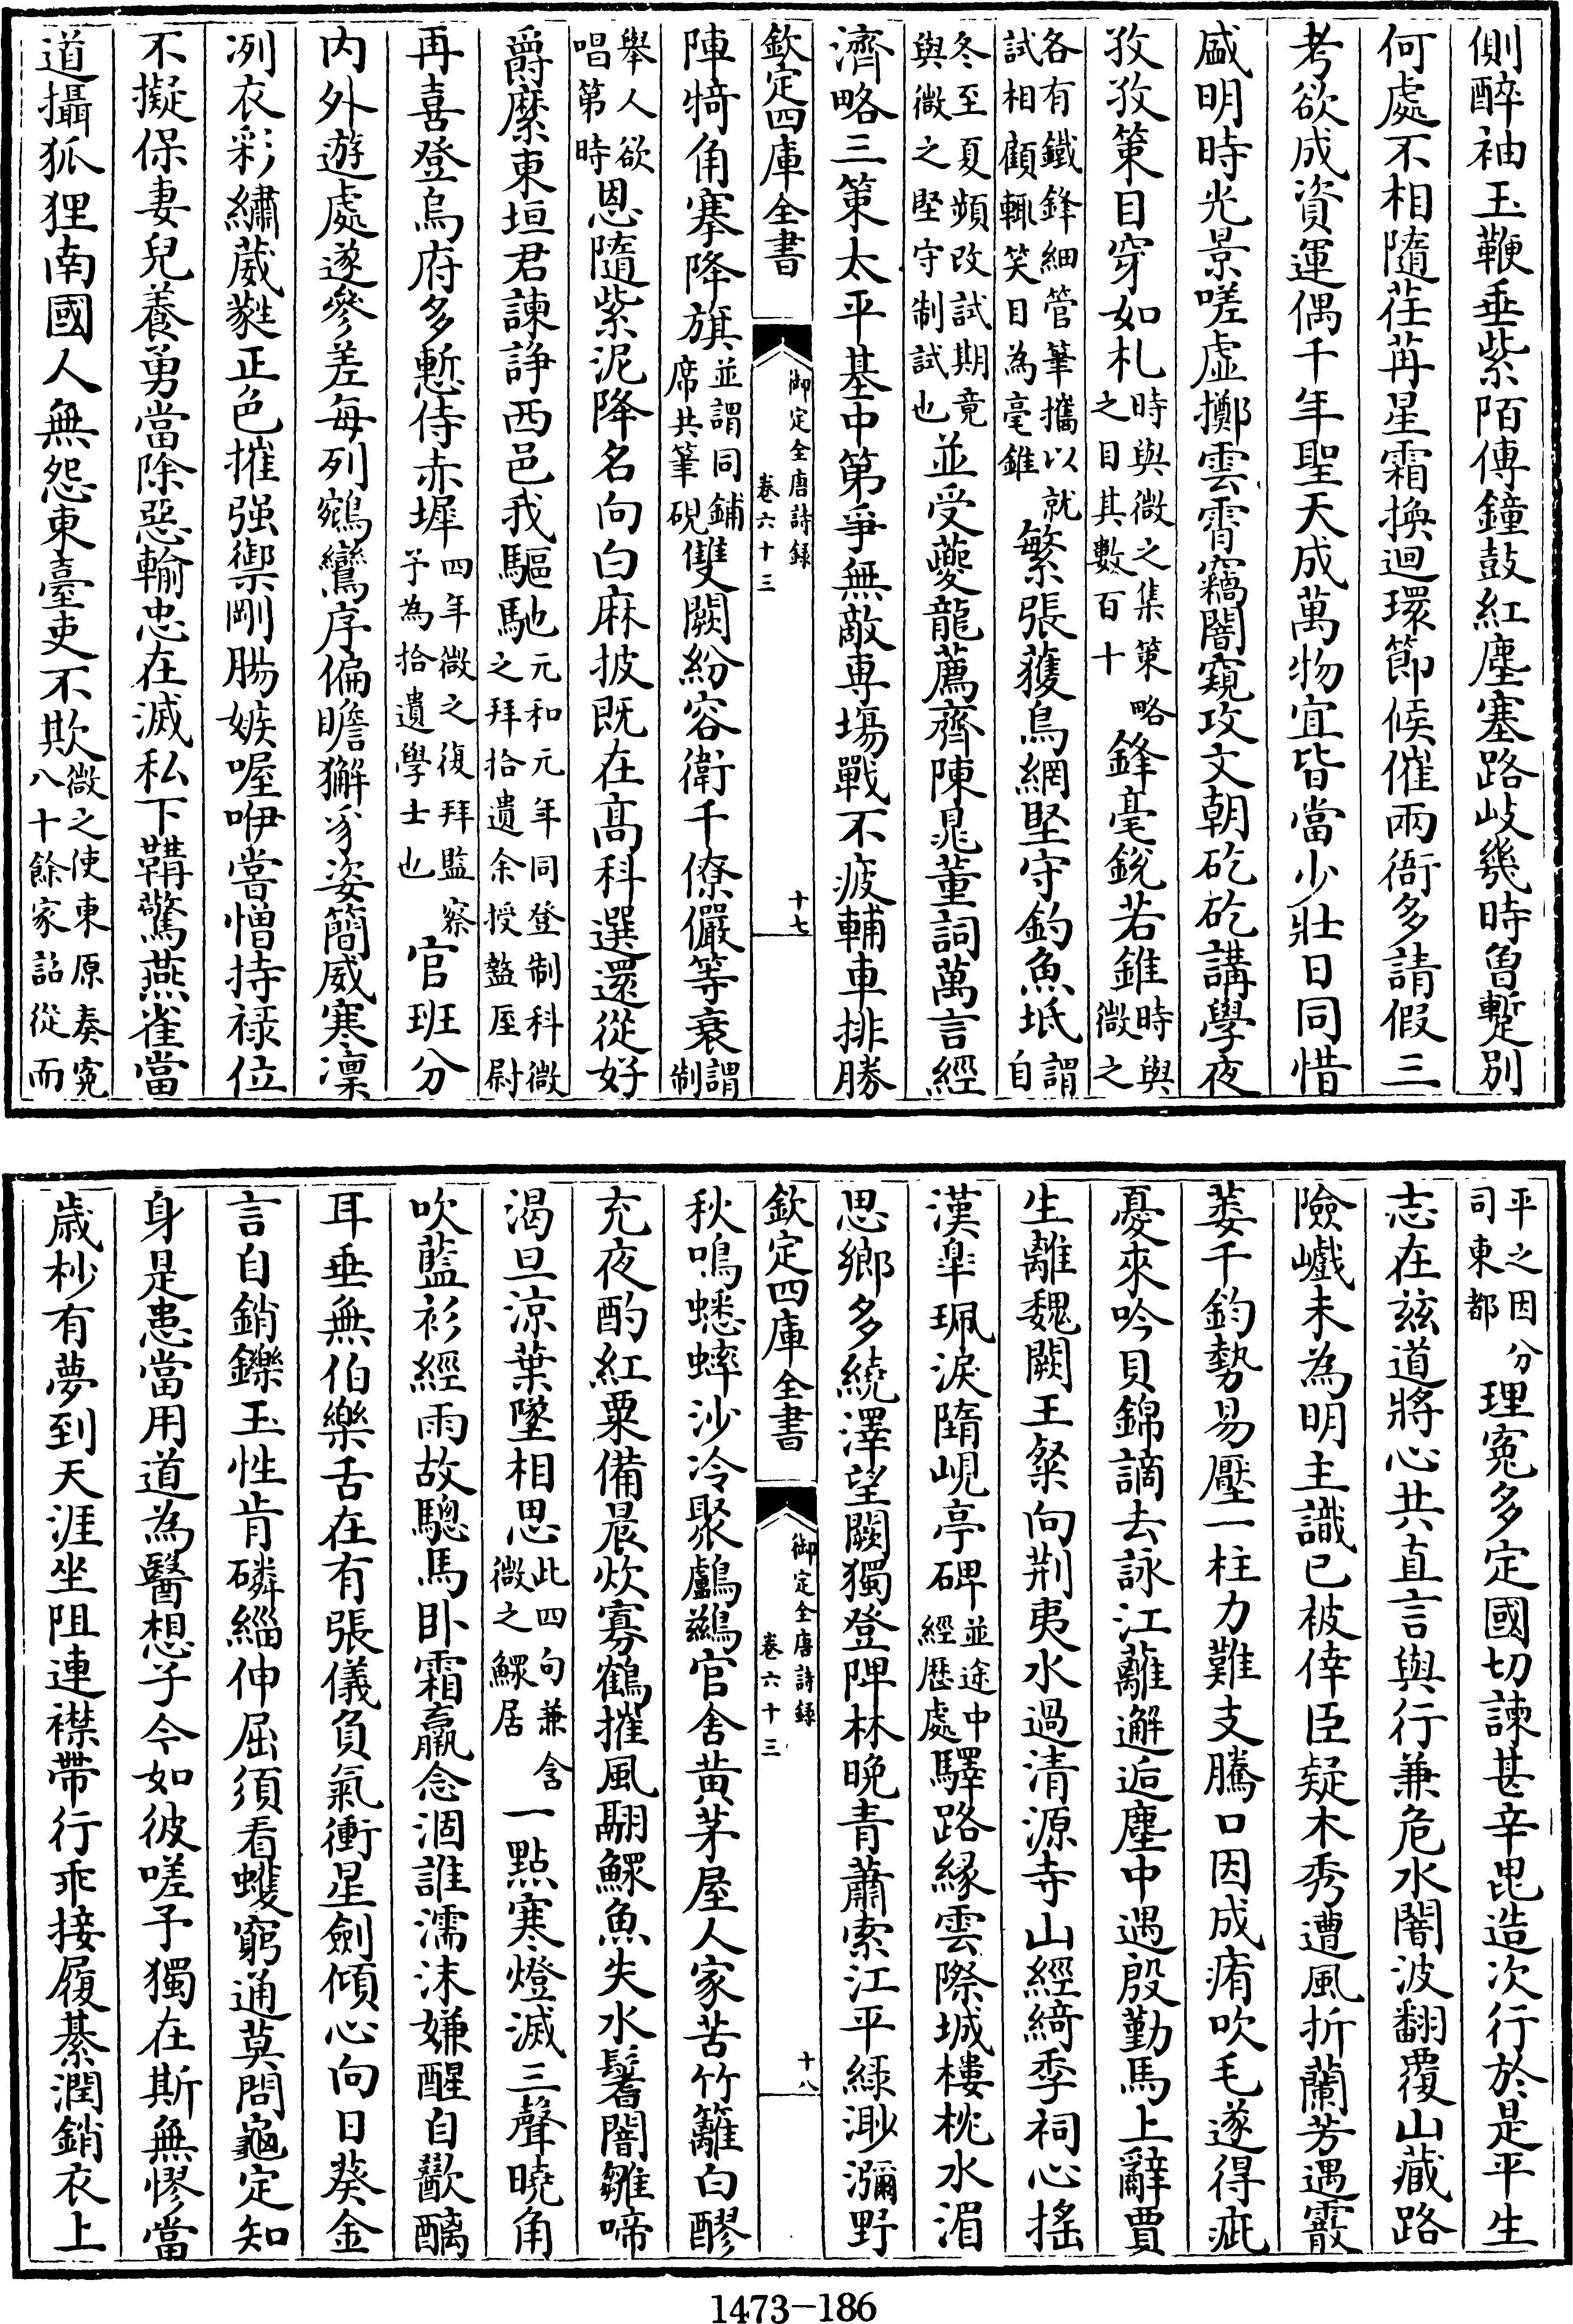 側醉袖玉鞭垂紫陌傳鐘鼓紅塵塞路岐幾時曾蹔別
何處不相隨荏苒星霜換迴環節候催兩衙多請假三
考欲成資運偶千年聖天成萬物宜皆當少壯日同惜
盛明時光景嗟虛擲雲霄竊闇窺攻文朝矻矻講學夜
孜孜策目穿如札時與微之集策略之目其數百十鋒毫銳若錐時與微之
各有鐵鋒細管筆攜以就試相顧輒笑目為毫錐繁張獲鳥網堅守釣魚坻謂自
冬至夏頻改試期竟與微之堅守制試也並受夔龍薦齊陳晁董詞萬言經
濟略三策太平基中第爭無敵專場戰不疲輔車排勝
欽定四庫全書 御定全唐詩錄 卷六十三 十七
陣犄角搴降旗並謂同鋪席共筆硯雙闕紛容衛千僚儼等衰謂制
舉人欲唱第時恩隨紫泥降名向白麻披既在高科選還從好
爵縻東垣君諫諍西邑我驅馳元和元年同登制科微之拜拾遺余授盩厔尉
再喜登烏府多慙侍赤墀四年微之復拜監察予為拾遺學士也官班分
內外遊處遂參差每列鵷鸞序偏瞻獬豸姿簡威寒凜
冽衣彩繡葳蕤正色摧强禦剛腸嫉喔咿嘗憎持祿位
不擬保妻兒養勇當除惡輸忠在滅私下鞲驚燕雀當
道攝狐狸南國人無怨東臺吏不欺微之使東原奏寃八十餘家詔從而
平之因分司東都理寃多定國切諫甚辛毘造次行於是平生
志在茲道將心共直言與行兼危水闇波翻覆山藏路
險巇未為明主識已被倖臣疑木秀遭風折蘭芳遇霰
萎千鈞勢易壓一柱力難支騰口因成痏吹毛遂得疵
憂來吟貝錦謫去詠江蘺邂逅塵中遇殷勤馬上辭賈
生離魏闕王粲向荆夷水過清源寺山經綺季祠心搖
漢臯珮淚隋峴亭碑並途中經歷處驛路緣雲際城樓枕水湄
思鄉多繞澤望闕獨登陴林晚青蕭索江平綠渺瀰野
欽定四庫全書 御定全唐詩錄 卷六十三 十八
秋鳴蟋蟀沙冷聚鸕鷀官舍黃茅屋人家苦竹籬白醪
充夜酌紅粟備晨炊寡鶴摧風翮鰥魚失水鬐闇雛啼
渴旦涼葉墜相思此四句兼含微之鰥居一點寒燈滅三聲曉角
吹藍衫經雨故驄馬卧霜羸念涸誰濡沫嫌醒自歠醨
耳垂無伯樂舌在有張儀負氣衝星劍傾心向日葵金
言自銷鑠玉性肯磷緇伸屈須看蠖窮通莫問龜定知
身是患當用道為醫想子今如彼嗟予獨在斯無憀當
歲杪有夢到天涯坐阻連襟帶行乖接履綦潤銷衣上
1473-186